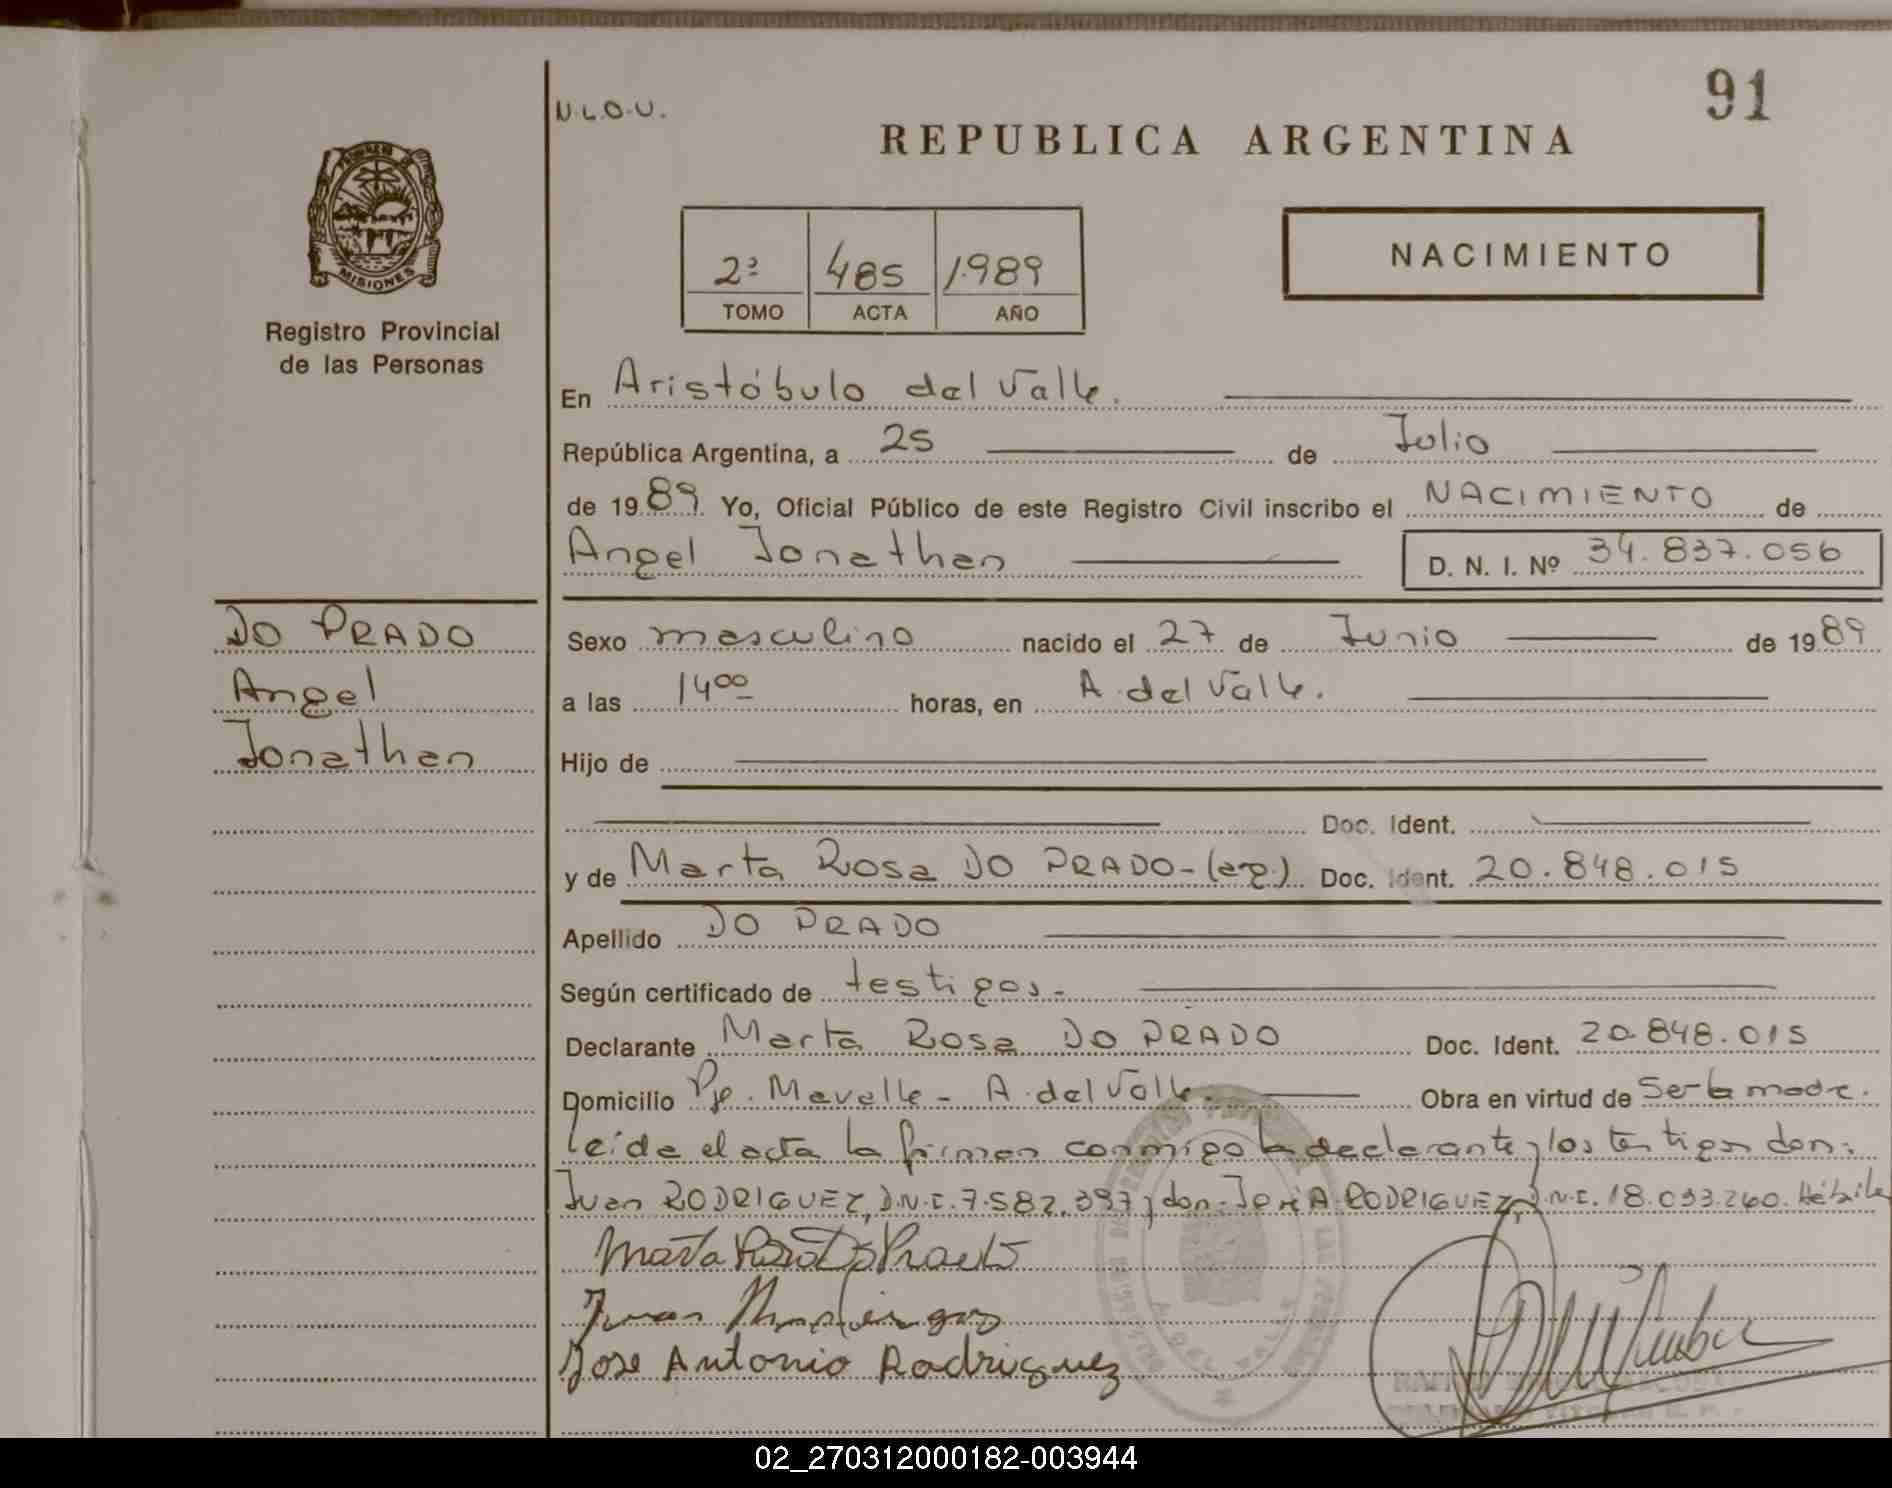 91
N.L.O.U.
REPUBLICA ARGENTINA
PROVINCIA DE
MISIONES
Registro Provincial
de las Personas
2º 485 1.989
TOMO ACTA AÑO
NACIMIENTO
En Aristóbulo del Valle.
República Argentina, a 25 de Julio
de 1989 Yo, Oficial Público de este Registro Civil inscribo el NACIMIENTO de
Angel Jonathan D. N. I. Nº 34.837.056
DO PRADO
Angel
Jonathan
Sexo masculino nacido el 27 de Junio de 1989
a las 14 00 horas, en A. del Valle.
Hijo de
Doc. Ident.
y de Marta Rosa DO PRADO-(ag.) Doc. Ident. 20.848.015
Apellido DO PRADO
Según certificado de testigos.-
Declarante Marta Rosa DO PRADO Doc. Ident. 20.848.015
Domicilio Pje. Mavalle - A. del Valle.- Obra en virtud de Ser la madre.
Leída el acta la firman conmigo la declarante y los testigos don:
Juan RODRIGUEZ, D.N.I. 7.582.397 y don: José A. RODRIGUEZ, D.N.I. 18.033.260. Hábiles
Marta Rosa Do Prado
Juan
Jose Antonio Rodriguez
A. DEL VALLE
02_270312000182-003944